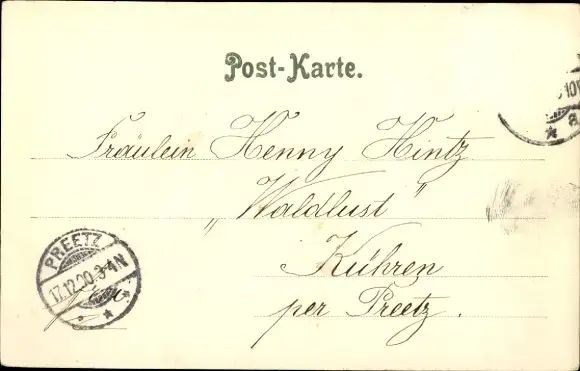 Post-Karte.
Fräulein Henny Hintz
„Waldlust"
Kühren
per Preetz.
PREETZ
17.12.00.3-4N